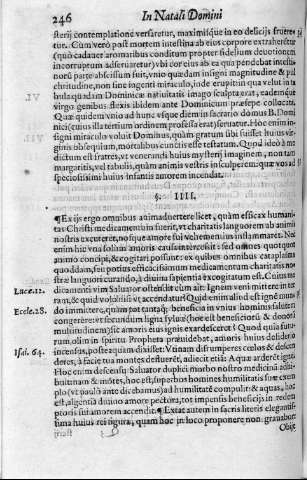 246 In Natali Domini
sterij contemplatione versaretur, maximisque in eo delicijs frueretur.
tur. Cum verò post mortem intestina ab eius corpore extraherẽtur
(quò cadauer aromatibus conditum propter fidelium deuotionem
incorruptum adseruaretur) vbi cor eius ab ea qua pendebat intestinorũ
norũ parte abscissum fuit, vnio quædam insigni magnitudine & pul
chritudine, non sine ingenti miraculo, inde eruptum qua velut in ta
bula quadam Dominicæ natiuitatis imago sculpta erat, eademque
virgo genibus flexis ibidem ante Dominicum præsepe collocata.
Quæ quidem vnio ad hunc vsque diem in sacrario domus B. Domi
nici (cuius illa tertium ordinem professa erat) seruatur. Hoc enim in-
signi miraculo voluit Dominus, quàm gratum sibi fuisset huius vir-
ginis obsequium, mortalibus cunctis esse testatum. Quod ideò à me
dictum est fratres, vt venerandi huius mysterij imaginem, non tam
margaritis, vel tabulis, quàm animis vestris insculperem: quæ vos ad
speciosissimi huius infantis amorem incendat.
§. IIII.
¶Ex ijs ergo omnibus animaduertere licet, quàm efficax humani-
tas Christi medicamentum fuerit, vt charitatis languorem ab animis
nostris excuteret, nosque amore sui vehementius inflammaret. Nec
enim hic vna solùm amoris causa intercessit: sed omnes quotquot
animo concipi, & cogitari possunt: ex quibus omnibus cataplasma
quoddam, seu potius efficacissimum medicamentum charitatis no-
stræ languori curando, à diuina sapientia excogitatum est. Cuius
Luc. 12. Saluator ostendit cùm ait. Ignem veni mittere in ter
ram, & quid volo nisi vt accendatur? Quid enim aliud est ignẽ
Eccle. 28. do immittere, quàm pot tantaq; beneficia in vnius hominis salutem
congerere: vt secundum ligna syluæ (hoc est beneficiorũ & donorũ
multitudinem) sic amoris eius ignis exardesceret? Quod quia futu-
rum, olim in spiritu Propheta præuidebat, amoris huius desiderio
Isai. 64. incensus, postea quàm dixisset. Vtinam disrumperes cœlos & descen
deres, à facie tua montes defluerẽt, adiecit etiã: Aquæ arderẽt igni.
Hoc enim descensu Saluator duplici morbo nostro medicinã
buit: nam & mõtes, hoc est, superbos homines humilitatis suæ exem
plo (vt paulò ante diximus) ad humilitatẽ compulit: & aquas, hoc
est, algentia diuino amore pectora, tot impensis beneficijs in redem
ptoris sui amorem accendit. ¶Extat autem in sacris literis elegantis-
sima huius rei figura, quam hoc in loco proponere non grauabor:
Obijt